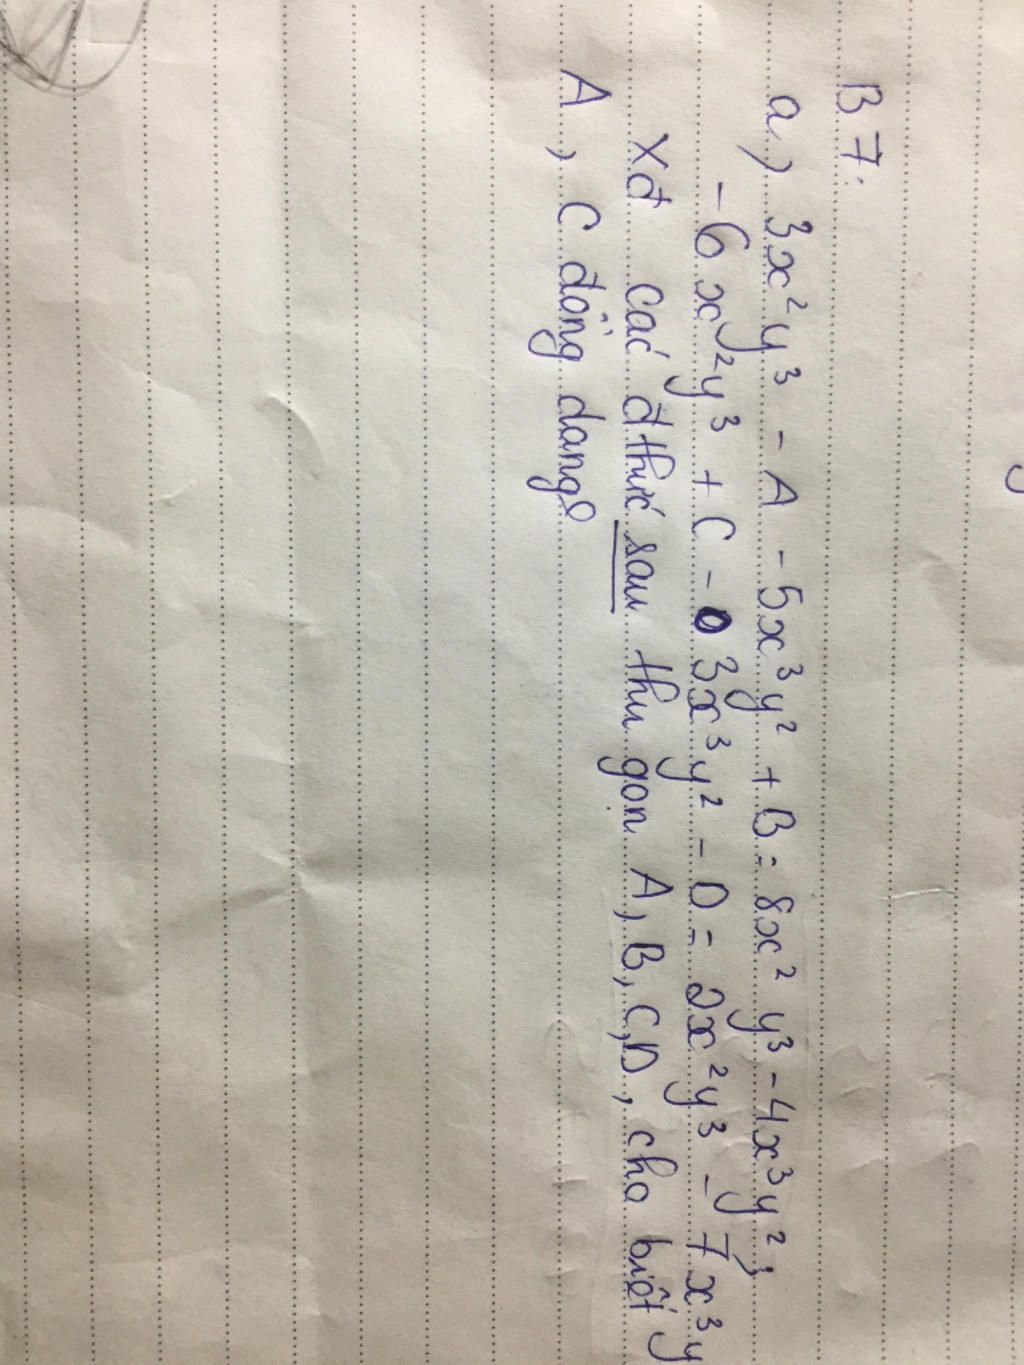 B7.
a) 3x²y³ - A - 5x³y² + B = 8x²y³ - 4x³y²;
- 6x²y³ + C - 3x³y² - D = 2x²y³ - 7x³y
xđ các đthức sau thu gọn A, B, C, D, cho biết
A, C đồng dạng